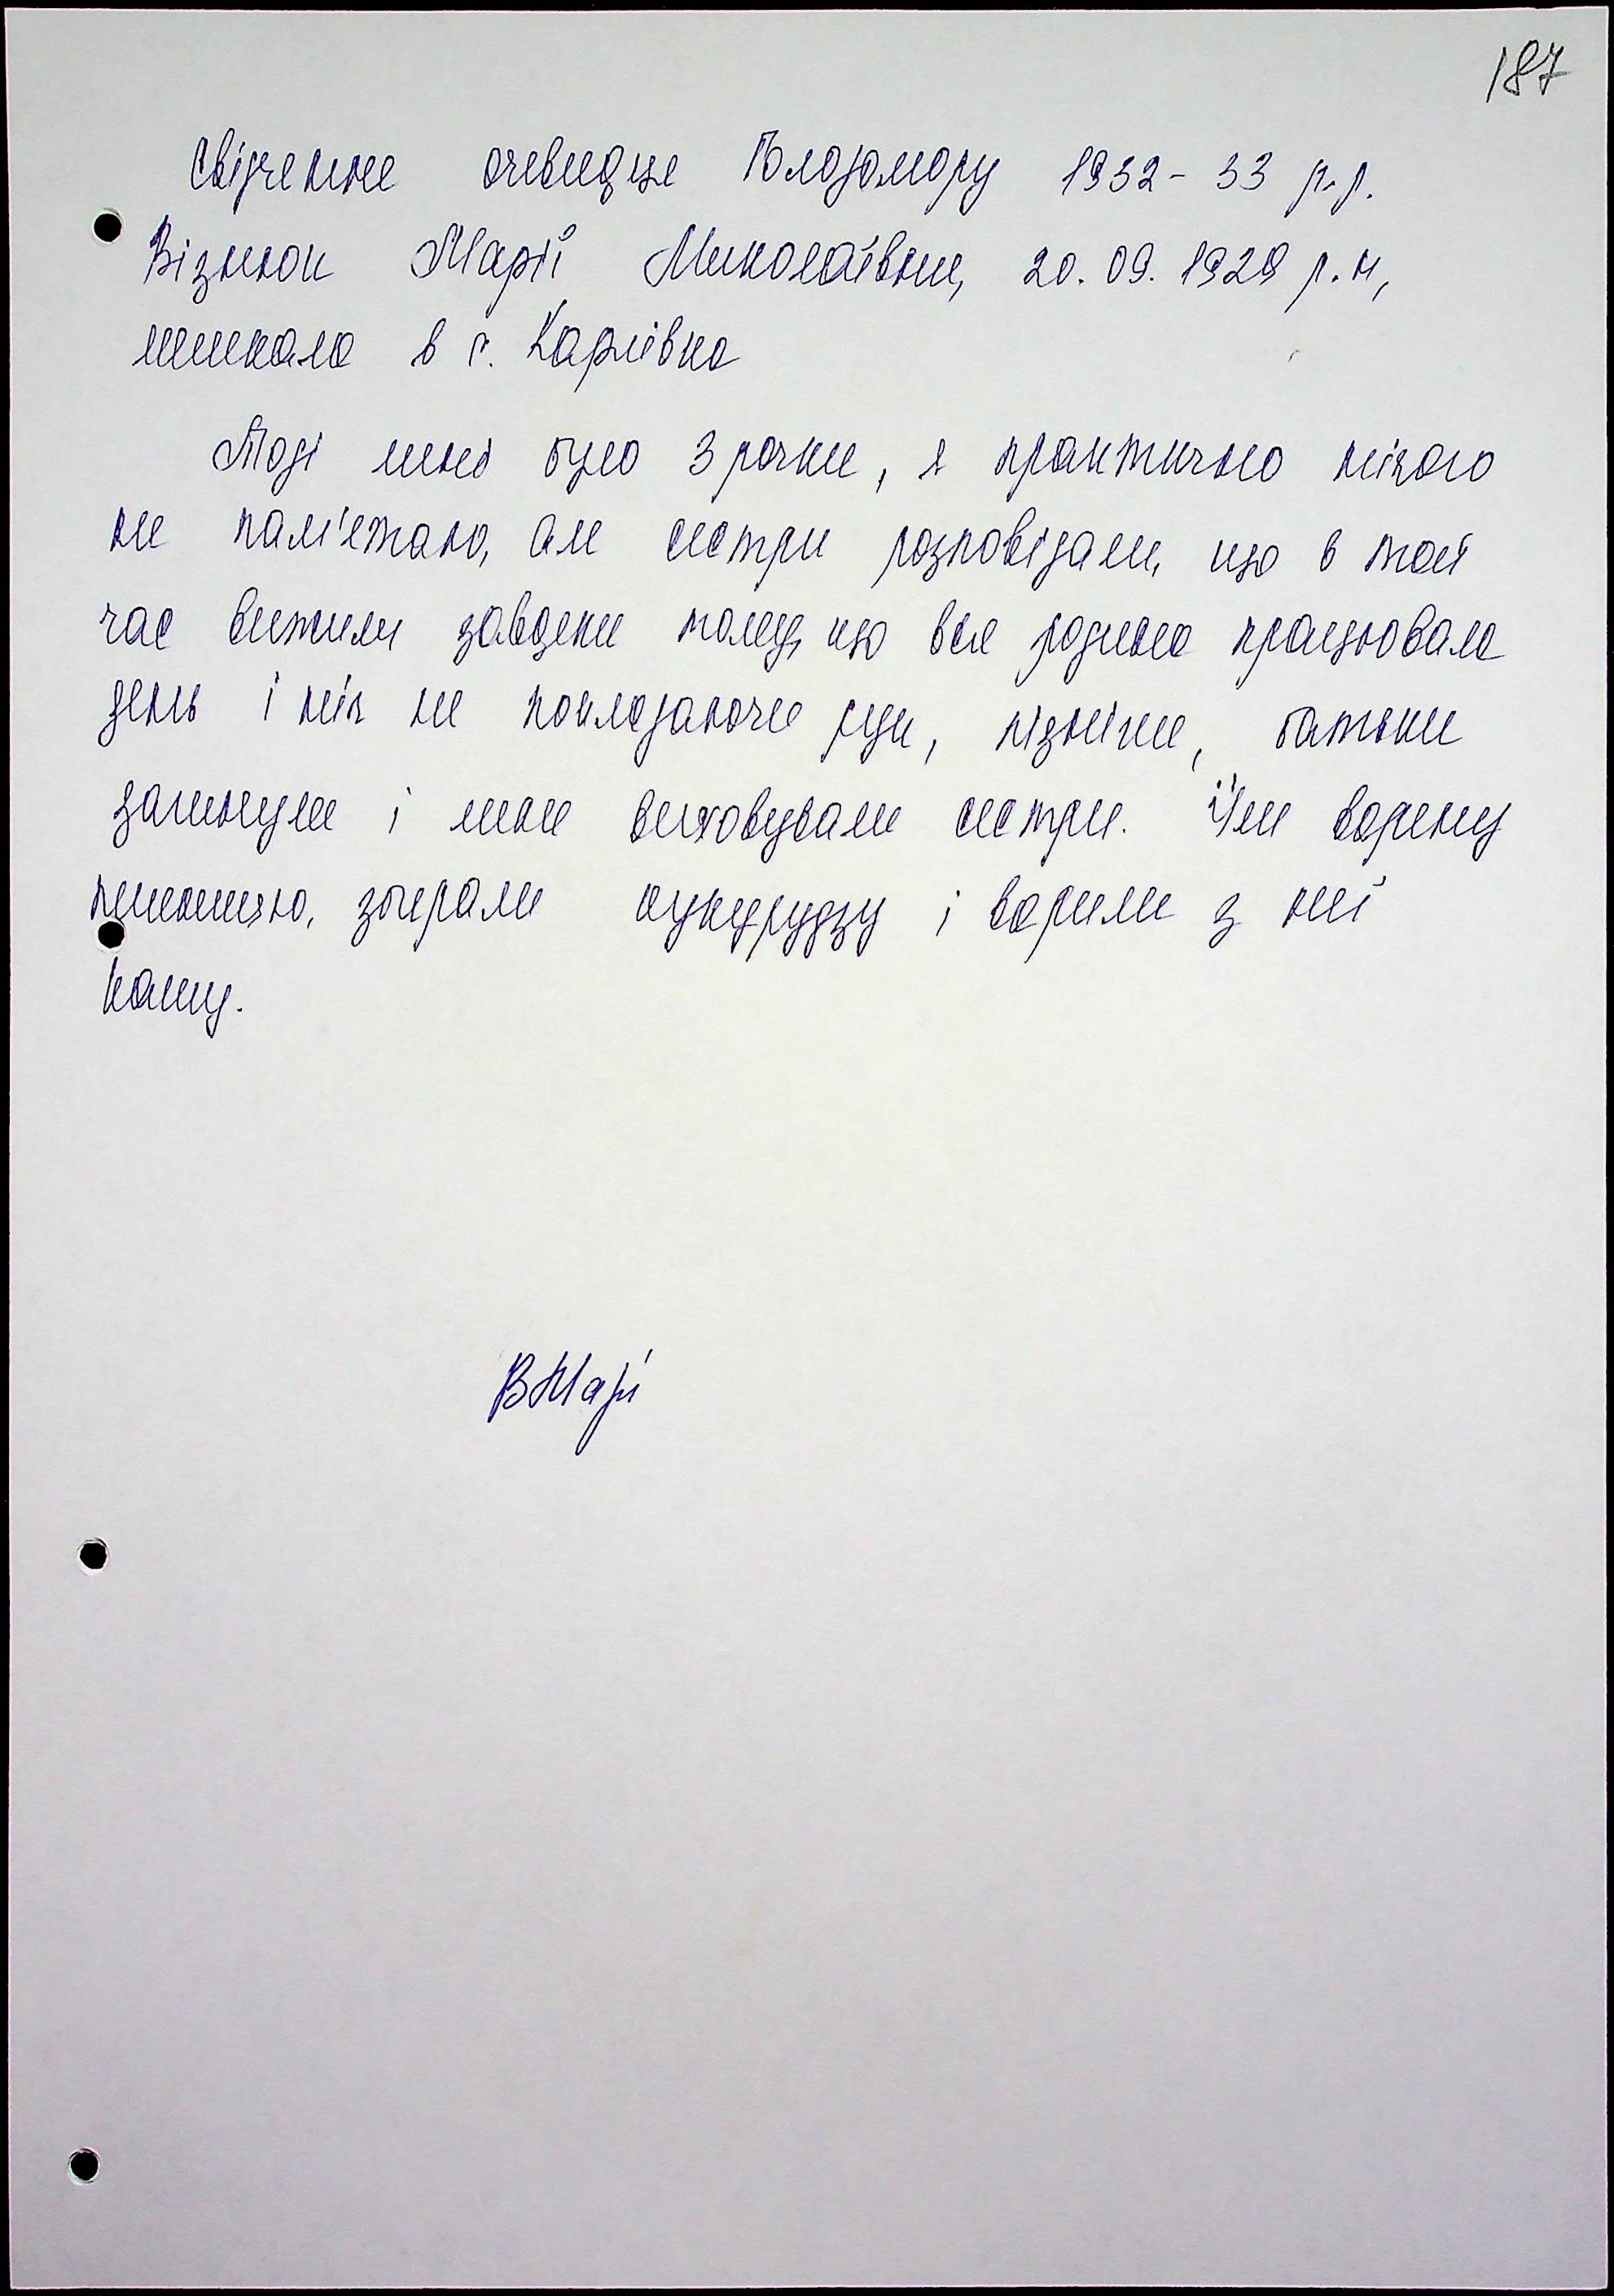 187
Свідчення очевидця Голодомору 1932-33 р.р.
Візнюк Марії Миколаївни, 20.09.1929 р.н,
мешкала в с. Карлівка
Тоді мені було 3 рочки, я практично нічого
не пам'ятаю, але сестри розповідали, що в той
час вижили завдяки тому, що вся родина працювала
день і ніч не покладаючи рук, пізніше, батьки
загинули і мене виховували сестри. Їли варену
пшеницю, збирали кукурудзу і варили з неї
кашу.
ВМарі